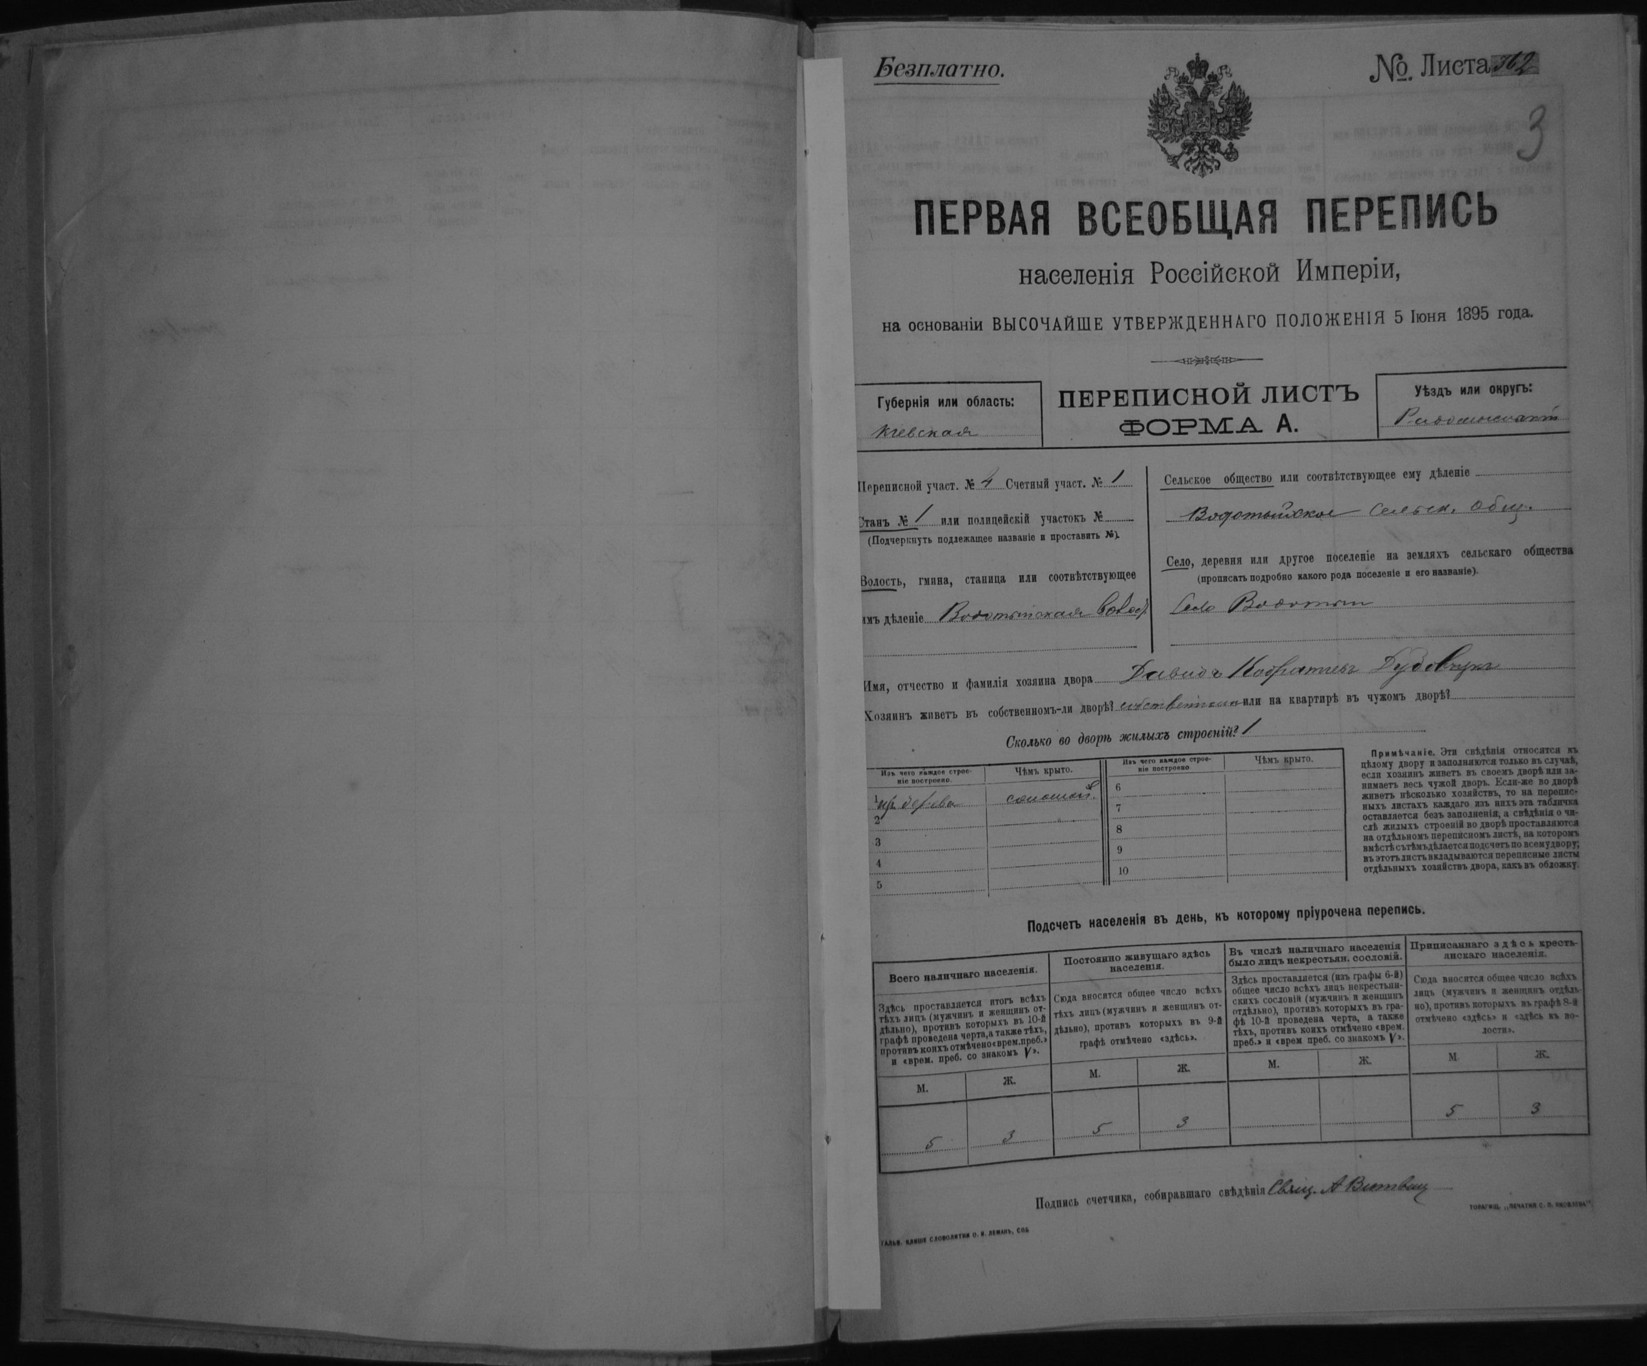 Безплатно.
№. Листа 362
3
ПЕРВАЯ ВСЕОБЩАЯ ПЕРЕПИСЬ
населенія Россійской Имперіи,
на основаніи ВЫСОЧАЙШЕ УТВЕРЖДЕННАГО ПОЛОЖЕНІЯ 5 Іюня 1895 года.
Губернія или область:
Кіевская
ПЕРЕПИСНОЙ ЛИСТЪ
ФОРМА А.
Уѣздъ или округъ:
Переписной участ. № 4 Счетный участ. № 1
Станъ № 1 или полицейскій участокъ №
(Подчеркнуть подлежащее названіе и проставить №).
Волость, гмина, станица или соотвѣтствующее
имъ дѣленіе Водотыйская волос.
Сельское общество или соотвѣтствующее ему дѣленіе
Водотыйское Сельск. Общ.
Село, деревня или другое поселеніе на земляхъ сельскаго общества
(прописать подробно какого рода поселеніе и его названіе).
Село Водотыи
Имя, отчество и фамилія хозяина двора Давидъ
Хозяинъ живетъ въ собственномъ-ли дворѣ? собственномъ или на квартирѣ въ чужомъ дворѣ?
Сколько во дворѣ жилыхъ строеній? 1
Изъ чего каждое строеніе построено
Чѣмъ крыто.
Изъ чего каждое строеніе построено
Чѣмъ крыто.
1 изъ дерева соломой
2
3
4
5
6
7
8
9
10
Примѣчаніе. Эти свѣдѣнія относятся къ
цѣлому двору и заполняются только въ случаѣ,
если хозяинъ живетъ въ своемъ дворѣ или за-
нимаетъ весь чужой дворъ. Если-же во дворѣ
живетъ нѣсколько хозяйствъ, то на перепис-
ныхъ листахъ каждаго изъ нихъ эта табличка
оставляется безъ заполненія, а свѣдѣнія о чи-
слѣ жилыхъ строеній во дворѣ проставляются
на отдѣльномъ переписномъ листѣ, на которомъ
вмѣстѣ съ тѣмъ дѣлается подсчетъ по всему двору;
въ этотъ листъ вкладываются переписные листы
отдѣльныхъ хозяйствъ двора, какъ въ обложку.
Подсчетъ населенія въ день, къ которому пріурочена перепись.
Всего наличнаго населенія.
Здѣсь проставляется итогъ всѣхъ
тѣхъ лицъ (мужчинъ и женщинъ от-
дѣльно), противъ которыхъ въ 10-й
графѣ проведена черта, а также тѣхъ,
противъ коихъ отмѣчено «врем. преб.»
и «врем. преб. со знакомъ V».
Постоянно живущаго здѣсь
населенія.
Сюда вносится общее число всѣхъ
тѣхъ лицъ (мужчинъ и женщинъ от-
дѣльно), противъ которыхъ въ 9-й
графѣ отмѣчено «здѣсь».
Въ числѣ наличнаго населенія
было лицъ некрестьян. сословій.
Здѣсь проставляется (изъ графы 6-й)
общее число всѣхъ лицъ некрестьян-
скихъ сословій (мужчинъ и женщинъ
отдѣльно), противъ которыхъ въ гра-
фѣ 10-й проведена черта, а также
тѣхъ, противъ коихъ отмѣчено «врем.
преб.» и «врем преб. со знакомъ V».
Приписаннаго здѣсь кресть-
янскаго населенія.
Сюда вносится общее число всѣхъ
лицъ (мужчинъ и женщинъ отдѣль-
но), противъ которыхъ въ графѣ 8-й
отмѣчено «здѣсь» и «здѣсь въ во-
лости».
М. Ж. М. Ж. М. Ж. М Ж.
5 3 5 3 5 3
Подпись счетчика, собиравшаго свѣдѣнія Свящ. А
ГАЛЬВ. КЛИШЕ СЛОВОЛИТНИ О. И. ЛЕМАНЪ, СПБ
ТОВАРИЩ. „ПЕЧАТНЯ С. П. ЯКОВЛЕВА"